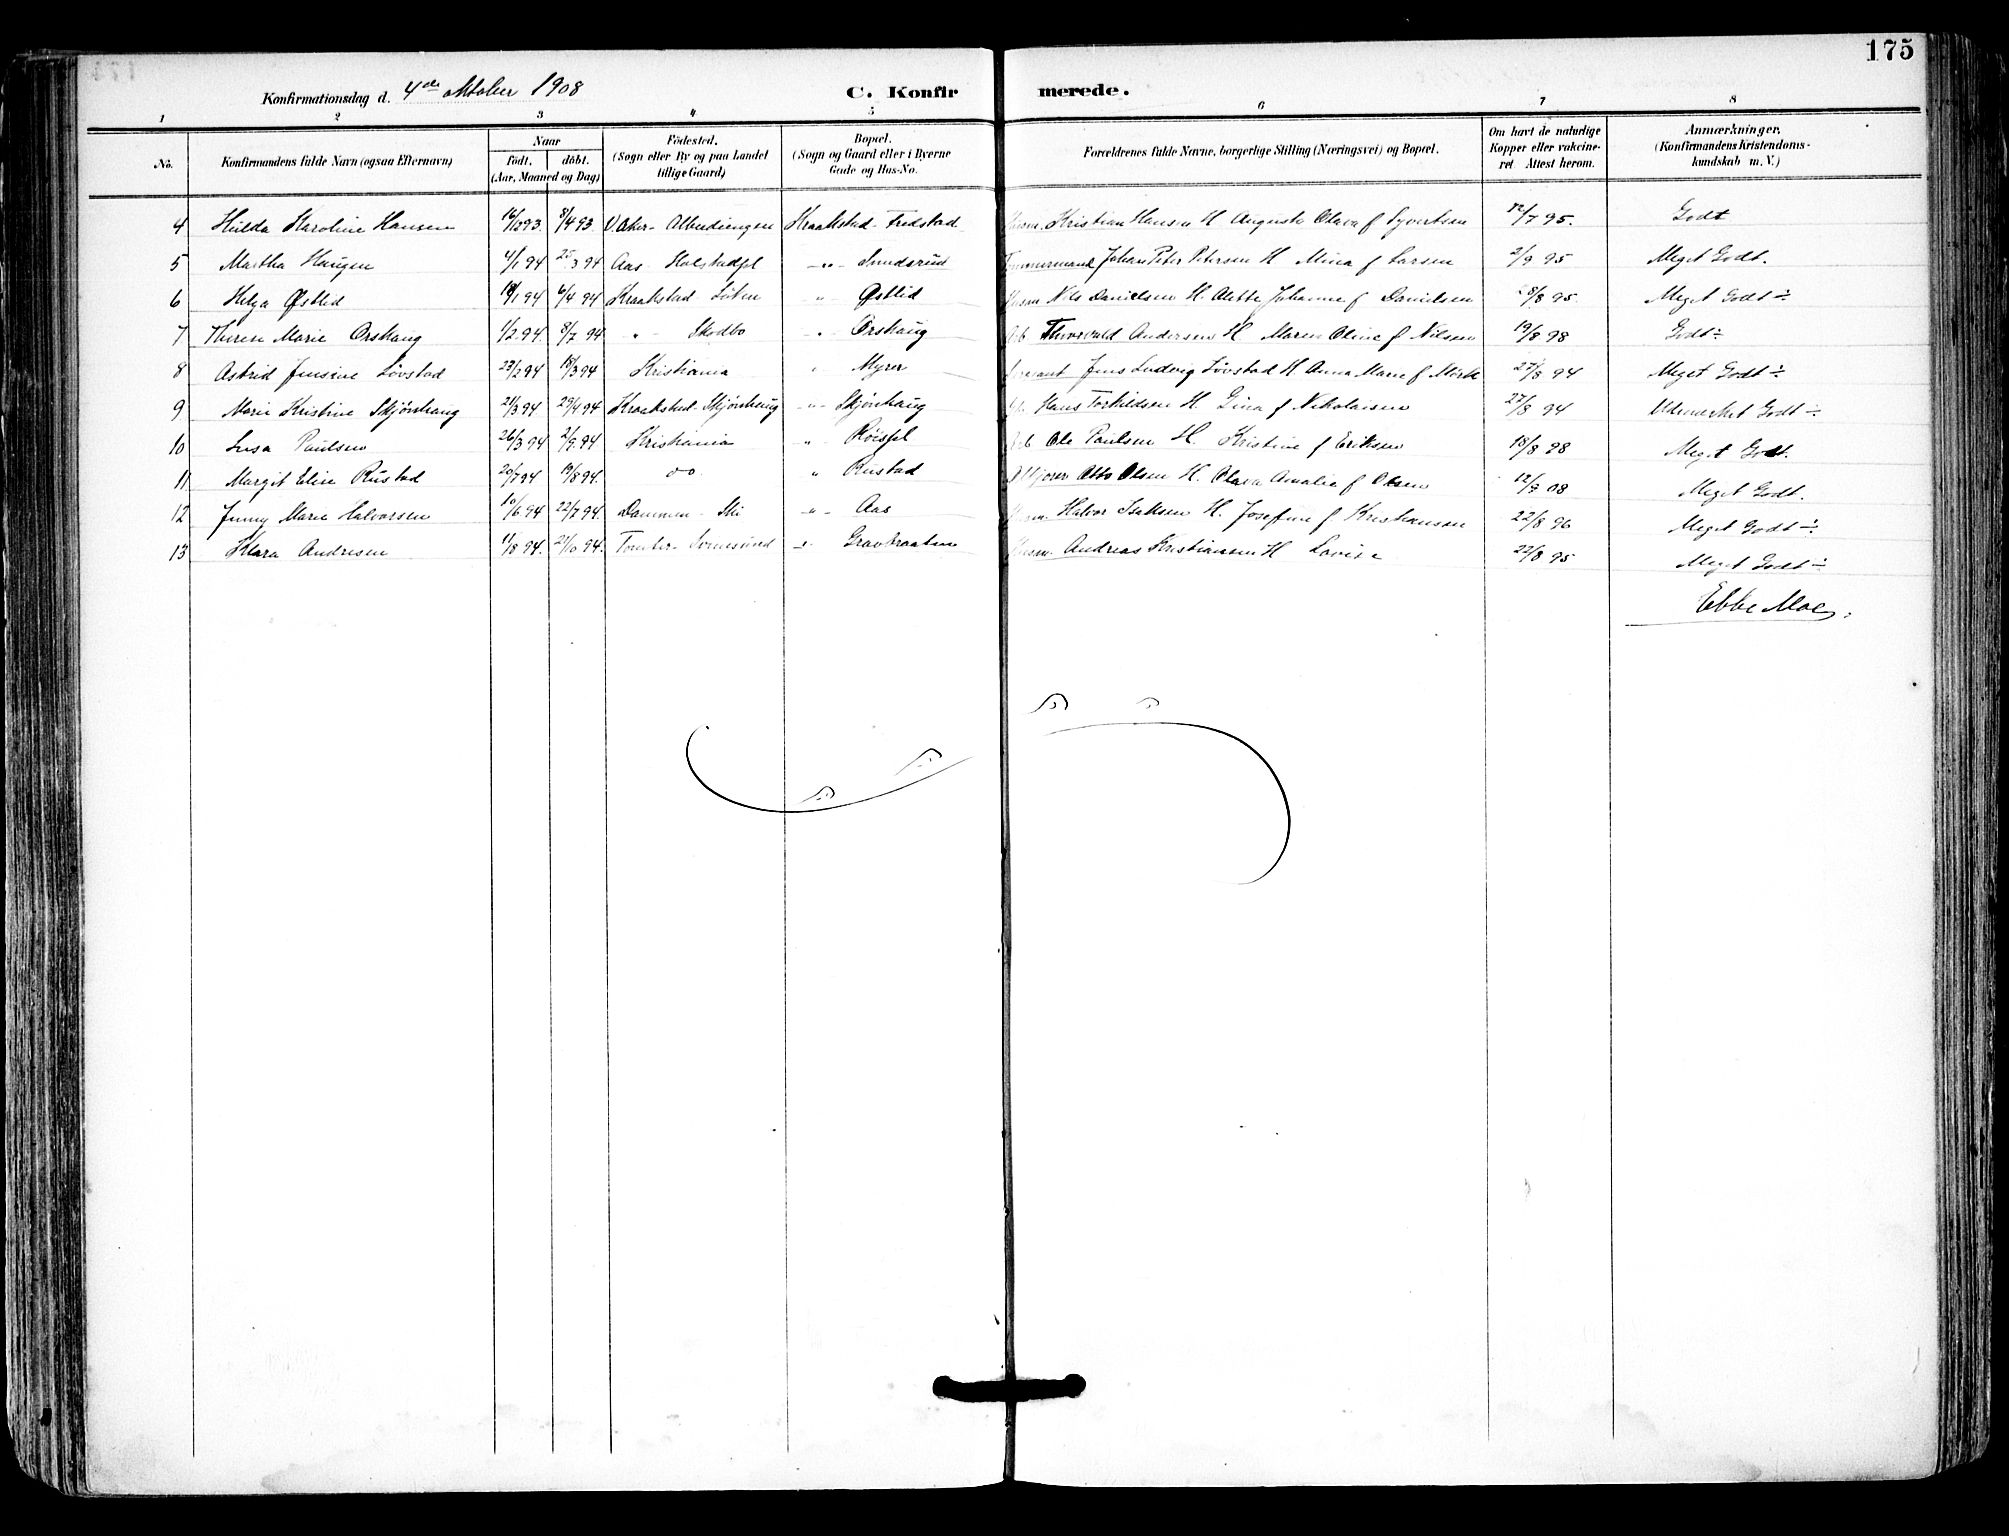 175
Konfirmationsdag d. 4de oktober 1908 C. Konfirmerede.
1 2 3 4 5 6 7 8
No. Konfirmandens fulde Navn (ogsaa Efternavn) Naar født. døbt. (Aar, Maaned og Dag) Fødested. (Sogn eller By og paa Landet tillige Gaard) Bopæl. (Sogn og Gaard eller i Byerne Gade og Hus-No. Forældrenes fulde Navne, borgerlige Stilling (Næringsvei) og Bopæl. Om havt de naturlige Kopper eller vakcineret. Attest herom. Anmærkninger. (Konfirmandens Kristendomskundskab m. V.)
4 Hilda Karoline Hansen 16/12 93. 8/4 93. V. Aker - Kraakstad - Fredstad Kristian Hansen H Auguste Olava f Syvertsen 12/7 95. Godt
5 Martha Haugen 4/1 94 25/3 94 Aas - „ - Smedsrud Tømmermand Johan Peter Petersen H Mina f Larsen 2/9 95 Meget Godt.
6 Helga Østlid 18/1 94 6/4 94 Kraakstad „ Østlid Nils Danielsen H. Alette Johanne f Danielsen 28/8 95. Meget Godt ÷
7 Therese Marie Orshaug 1/2 94. 8/7 94 „ Skodbo „ Orshaug Arb Thorvald Andersen H Maren Oline f Nilsen 19/8 98 Godt ÷
8 Astrid Jensine Løvstad 23/2 94 18/3 94 Kristiania „ Myrer Jens Ludvig Løvstad H Anna Marie f Mørk 27/8 94 Meget Godt ÷
9 Marie Kristine Skjønhaug 21/3 94 29/4 94 Kraakstad. Skjønhaug „ Skjønhaug Hans Torkildsen H. Gina f Nikolaisen 27/8 94 Udmerket Godt ÷
10 Lusa Paulsen 26/3 94 2/9. 94 Kristiania „ Arb Ole Paulsen H. Kristine f Eriksen 18/8 98 Meget Godt.
11 Margit Elise Rustad 20/7 94 19/8 94. do „ Rustad Otto Olsen H. Olava Amalie f Olsen 12/9 08 Meget Godt.
12 Jenny Marie Halvorsen 10/6 94 22/7 94. Dammen - Ski „ Aas Halvor Isaksen H. Josefine f. Kristiansen 22/8 96 Meget Godt ÷
13 Klara Andresen 11/8 94. 21/10 94. Tomter - „ Andreas Kristiansen H Lovise 22/8 95 Meget Godt ÷
Ebbe Moe.